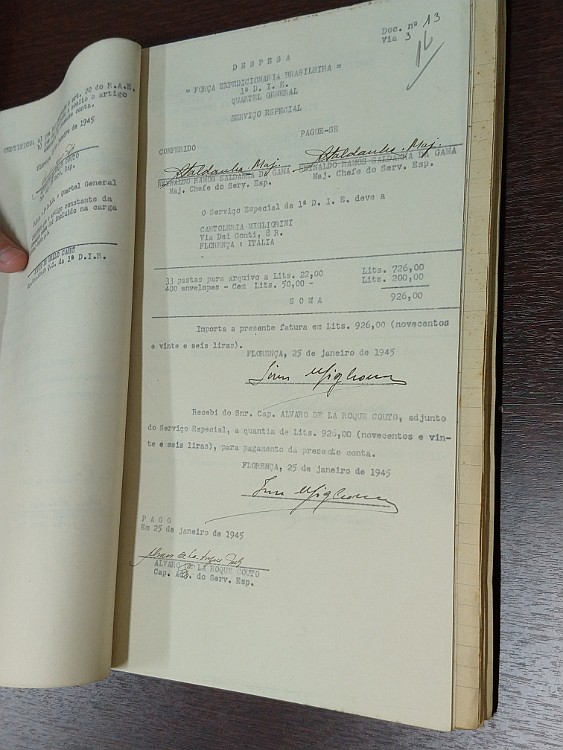 art. 30 do R.A.E.
artigo
conta.
de 1945
COUTO
Quartel General
constante da
incluído na carga
da 1ª D.I.E.
Doc. nº 13
Via 3
16
D E S P E S A
= FORÇA EXPEDICIONARIA BRASILEIRA =
1ª D. I. E.
QUARTEL GENERAL
SERVIÇO ESPECIAL
CONFERIDO PAGUE-SE
Saldanha. Maj. Saldanha. Maj.
REYNALDO RAMOS SALDANHA DA GAMA REYNALDO RAMOS SALDANHA DA GAMA
Maj. Chefe do Serv. Esp. Maj. Chefe do Serv. Esp.
O Serviço Especial da 1ª D. I. E. deve a
CARTOLERIA MIGLIORINI
Via Dei Conti, 8 R.
FLORENÇA : ITALIA
33 pastas para arquivo a Lits. 22,00 Lits. 726,00
400 envelopes - Cem Lits. 50,00 - Lits. 200,00
S O M A 926,00
Importa a presente fatura em Lits. 926,00 (novecentos
e vinte e seis liras).
FLORENÇA, 25 de janeiro de 1945
Recebi do Snr. Cap. ALVARO DE LA ROQUE COUTO, adjunto
do Serviço Especial, a quantia de Lits. 926,00 (novecentos e vin-
te e seis liras), para pagamento da presente conta.
FLORENÇA, 25 de janeiro de 1945
P A G O
Em 25 de janeiro de 1945
ALVARO DE LA ROQUE COUTO
Cap. Adj. do Serv. Esp.